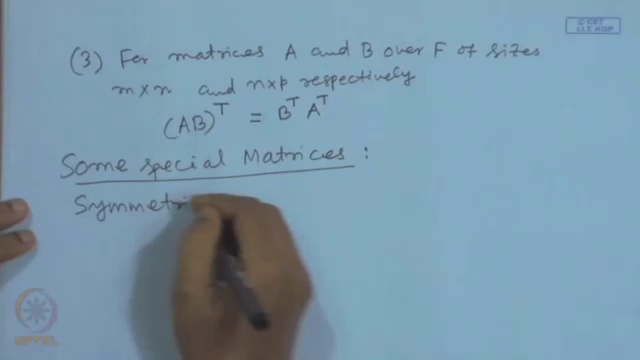 © CET
I.I.T. KGP
(3) For matrices A and B over F of sizes
m×n and n×p respectively
(AB)^T = B^T A^T
Some special Matrices :
Symmetri
NPTEL